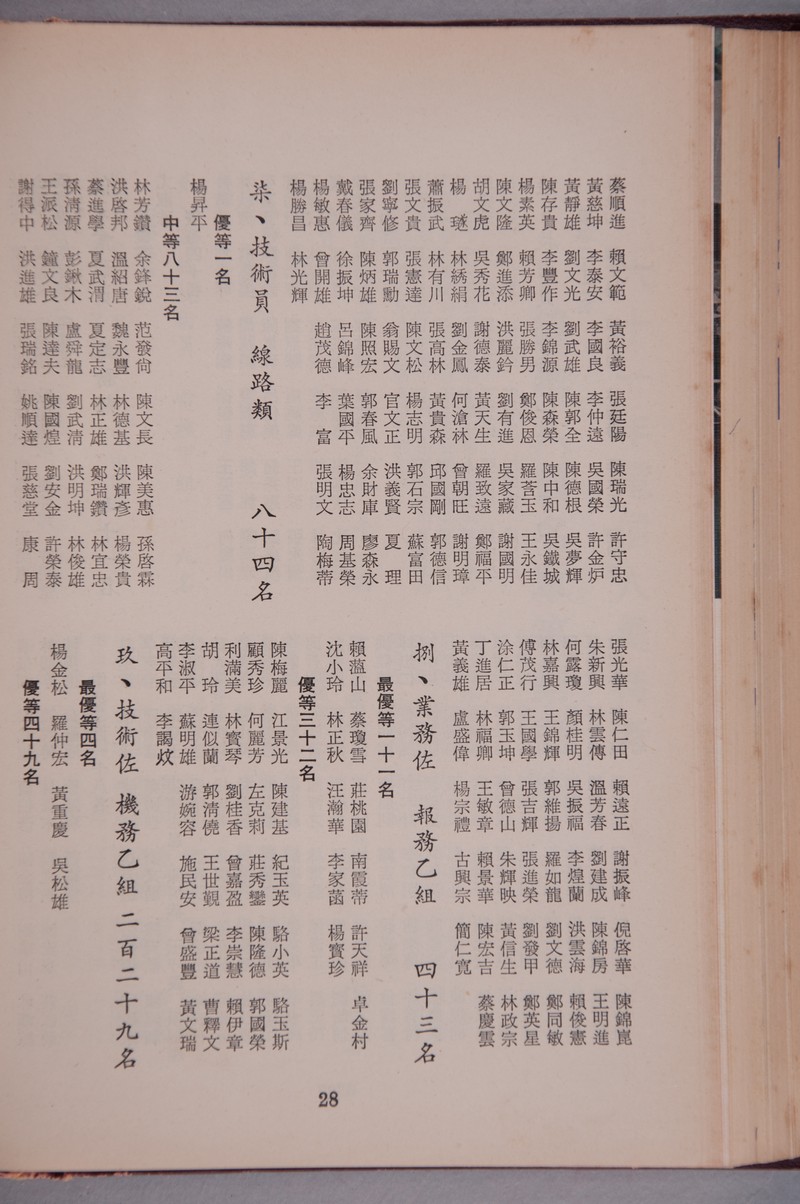 蔡順進 賴文範 黃裕義 張廷陽 陳瑞光 許守忠
黃慈坤 李泰安 李國良 李仲遠 吳國榮 許金炉
黃靜雄 劉文光 劉武雄 陳郭全 陳德根 吳夢輝
陳存貴 李豐作 李錦源 陳森榮 陳中和 吳鐵城
楊素英 賴芳卿 張勝男 鄭俊恩 羅莟玉 王永佳
陳文隆 鄭進添 洪麗鈴 劉有進 吳家藏 謝國明
胡文虎 吳秀花 謝德泰 黃天生 羅致遠 鄭福平
楊 璲 林綉絹 劉金鳳 何滄林 曾朝旺 謝明璋
蕭振武 林有川 張高林 黃貴森 邱國剛 郭德信
張文貴 張憲達 陳文松 楊志明 郭石宗 蘇富田
劉寧修 郭瑞勳 翁賜文 官文正 洪義賢 夏 理
張家齊 陳炳雄 陳照宏 郭春風 余財庫 廖森永
戴春儀 徐振坤 呂錦峰 葉國平 楊忠志 周基榮
楊敏惠 曾開雄 趙茂德 李 富 張明文 陶梅蒂
楊勝昌 林光輝
柒、技術員 線路類 八十四名
優等一名
楊昇平
中等八十三名
林芳鑽 余鋒銳 范發尙 陳文長 陳美惠 孫啓霖
洪啓邦 溫紹唐 魏永豐 林德基 洪輝彥 楊榮貴
蔡進學 夏武渭 夏定志 林正雄 鄭瑞鑽 林宜忠
孫淸源 彭鍬木 盧舜龍 劉武淸 洪明坤 林俊雄
王派松 鐘文良 陳達夫 陳國煌 劉安金 許榮泰
謝得中 洪進雄 張瑞銘 姚順達 張慈堂 康 周
張光華 陳仁田 賴遠正 謝振峰 倪啓華 陳錦崑
朱新興 林雲傳 溫芳春 劉建成 陳錦房 王明進
何露瓊 顏桂明 吳振福 李煌蘭 洪雲海 賴俊憲
林嘉興 王錦輝 郭維揚 羅如龍 劉文德 鄭同敏
傅茂行 王國學 張吉輝 張進榮 劉發甲 鄭英星
涂仁正 郭玉坤 曾德山 朱輝映 黃信生 林政宗
丁進居 林福卿 王敏章 賴景華 陳宏吉 蔡慶雲
黃義雄 盧盛偉 楊宗禮 古興宗 簡仁寬
捌、業務佐 報務乙組 四十三名
最優等一十一名
賴蘊山 蔡瓊雪 莊桃園 南霞蒂 許天祥 卓金村
沈小玲 林正秋 汪瀚華 李家菡 楊寳珍
優等三十二名
陳梅麗 江景光 陳建基 紀玉英 駱小英 駱玉斯
顧秀珍 何麗芳 左克莉 莊秀鑾 陳隆德 郭國榮
利滿美 林寳琴 劉桂香 曾嘉盈 李崇慧 賴伊章
胡 玲 連似蘭 郭淸僥 王世覲 梁正道 曹釋文
李淑平 蘇明雄 游婉容 施民安 曾盛豐 黃文瑞
高平和 李謁炆
玖、技術佐 機務乙組 二百二十九名
最優等四名
楊金松 羅仲宏 黃重慶 吳松雄
優等四十九名
28